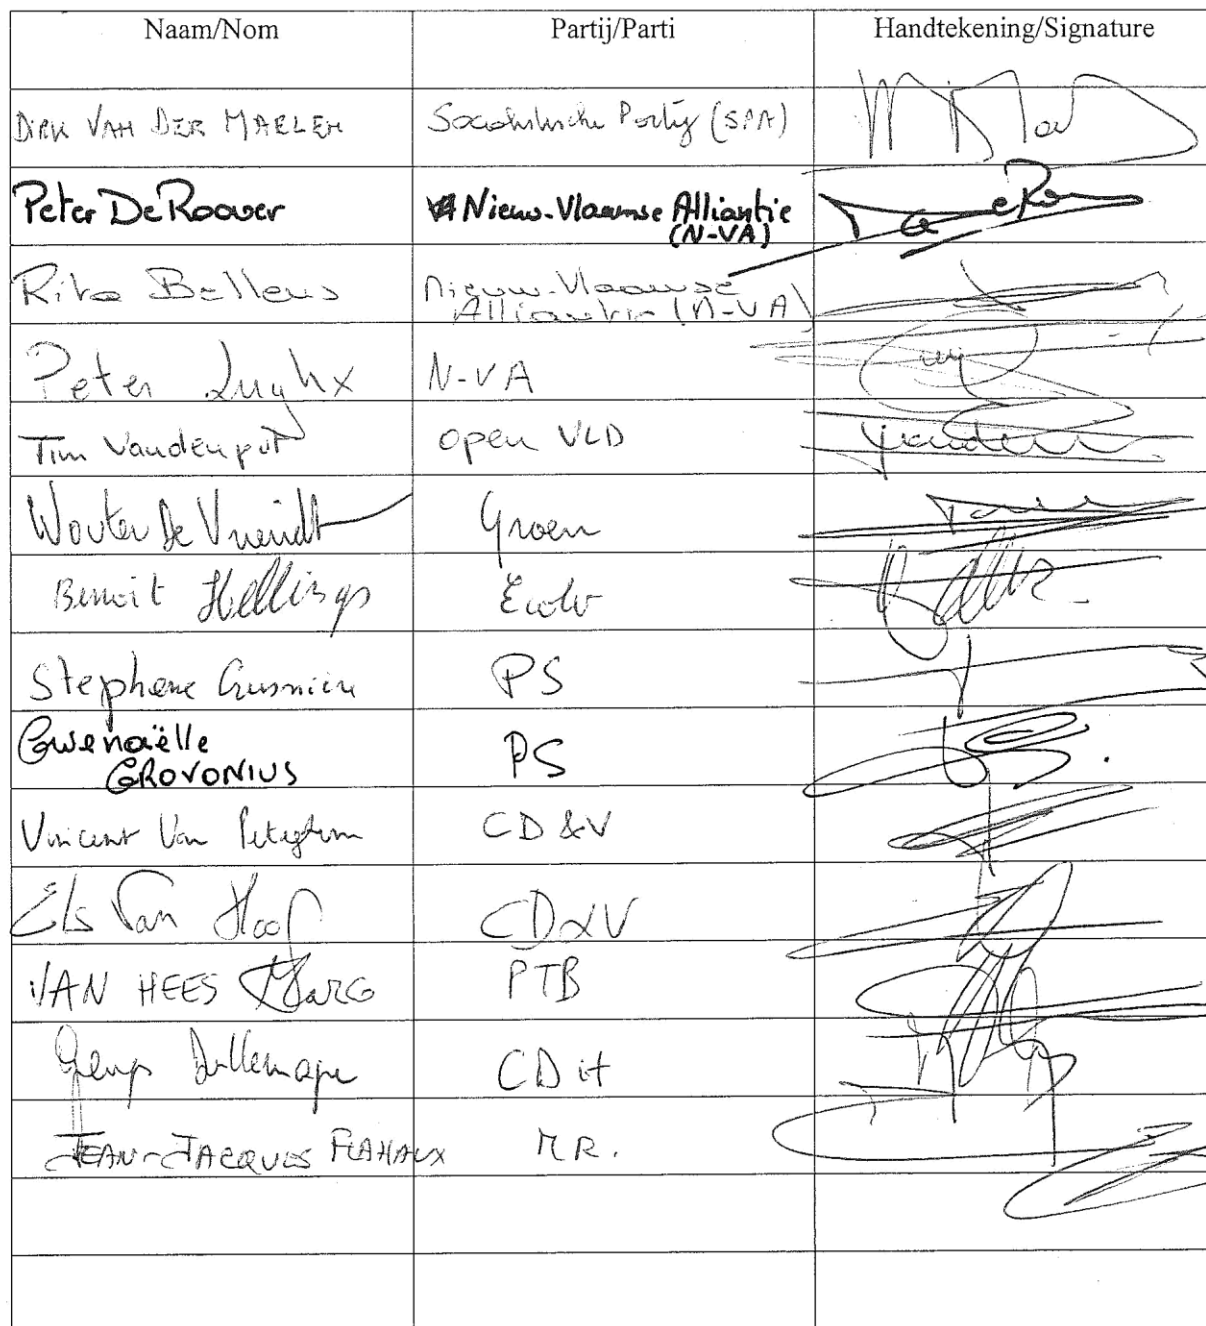 Naam/Nom Partij/Parti Handtekening/Signature
DIRK VAN DER MAELEN Socialistische Partij (SPA)
Peter De Roover Nieuw-Vlaamse Alliantie
(N-VA)
Rita Bellens Nieuw-Vlaamse
Alliantie (N-VA)
Peter Luykx N-VA
Tim Vandenput open VLD
Wouter De Vriendt Groen
Benoit Hellings Ecolo
Stephane Crusnière PS
Gwenaëlle
GROVONIUS PS
Vincent Van Peteghem CD&V
Els Van Hoof CD&V
VAN HEES Marco PTB
Georges Dallemagne CDH
JEAN-JACQUES FLAHAUX M.R.